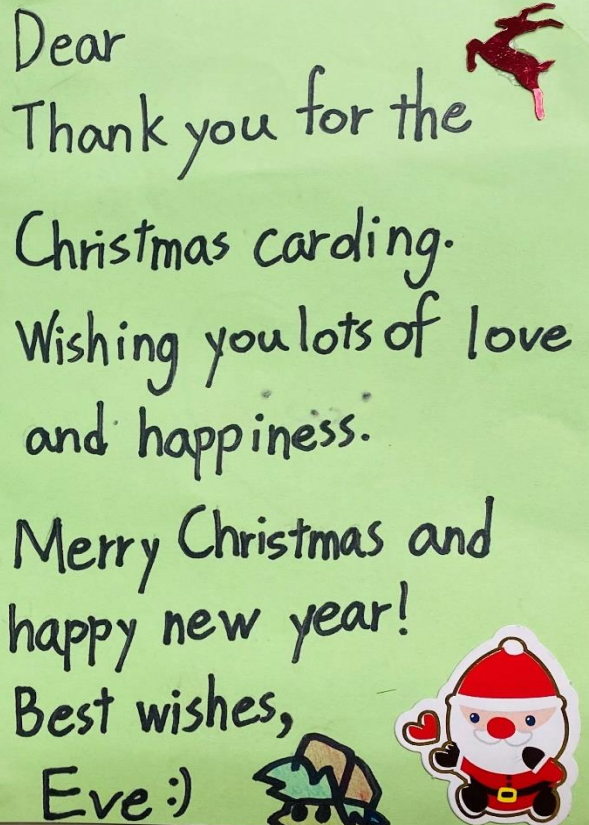 Dear
Thank you for the
Christmas carding.
Wishing you lots of love
and happiness.
Merry Christmas and
happy new year!
Best wishes,
Eve :)